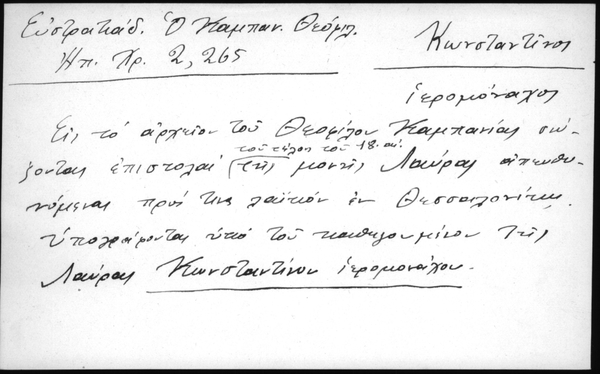 Εὐστρατιάδ. Ὁ Καμπαν. Θεόφιλ.
Ἠπ. Χρ. 2, 265
Κωνσταντῖνος
ἱερομόναχος
Εἰς τό ἀρχεῖον τοῦ Θεοφίλου Καμπανίας σώ-
τοῦ τέλους τοῦ 18. αἰ.
ζονται ἐπιστολαί (τῆς μονῆς Λαύρας ἀπευθυ-
νόμεναι πρός τινα λαϊκόν ἐν Θεσσαλονίκῃ.
Ὑπογράφονται ὑπό τοῦ καθηγουμένου τῆς
Λαύρας Κωνσταντίνου ἱερομονάχου.